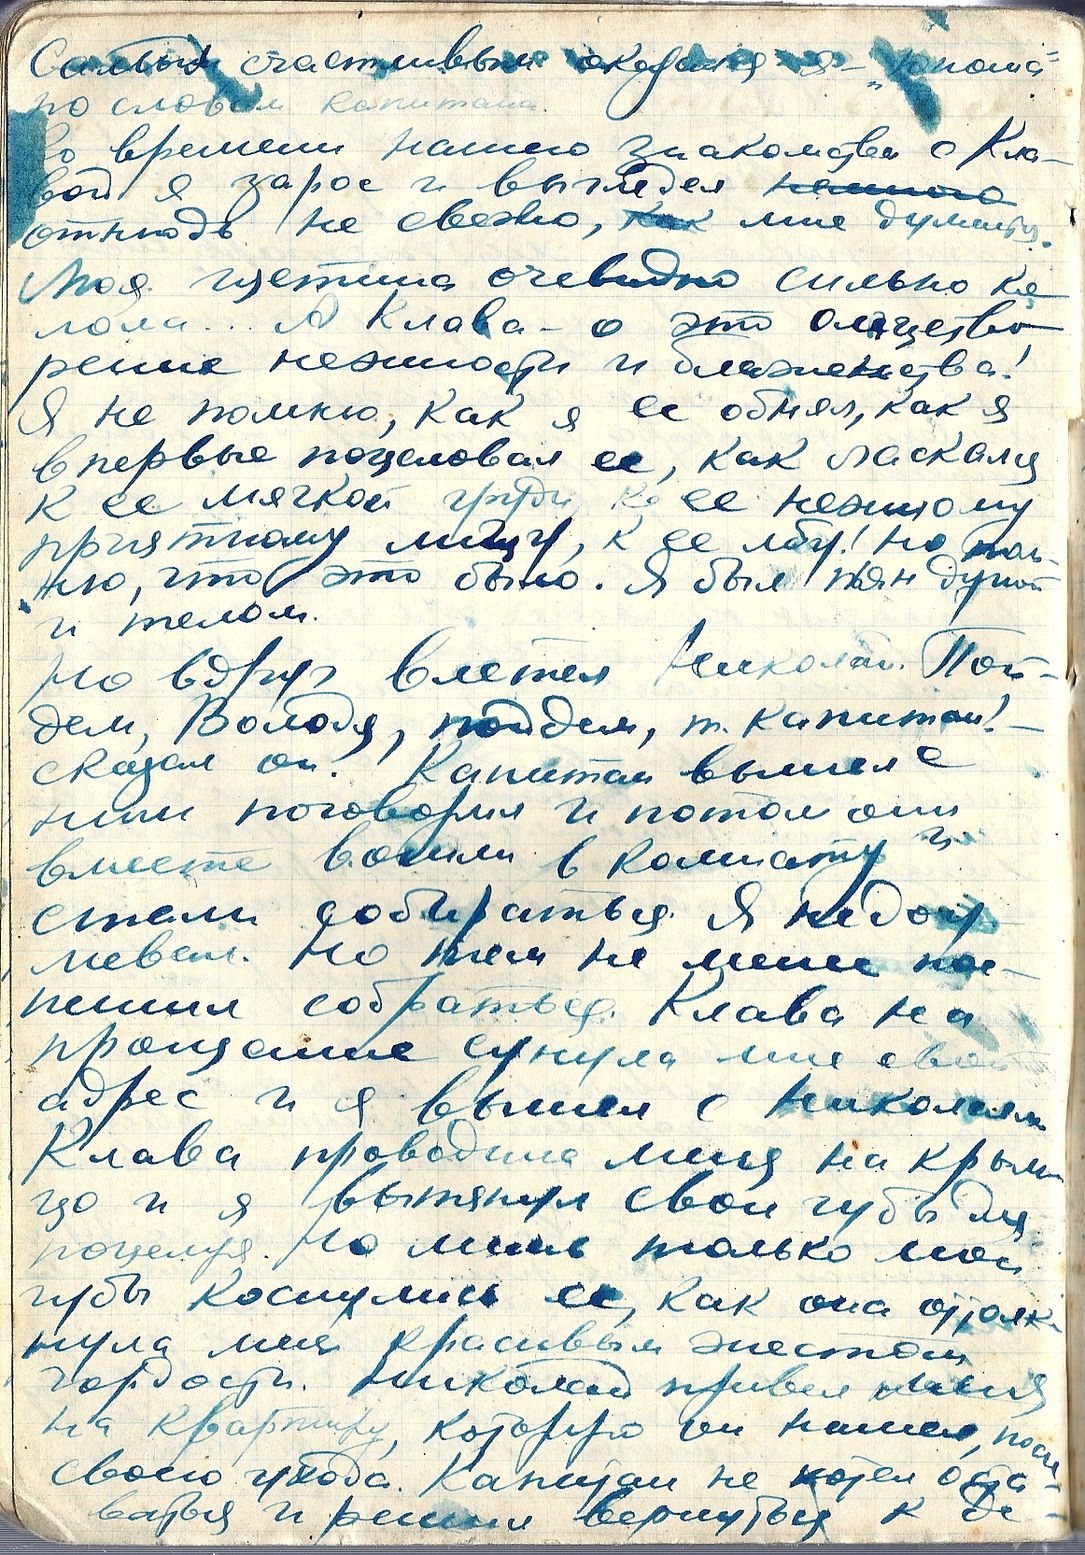 Самым счастливым оказался я - „юноша"
по словам капитана.
Ко времени нашего знакомства с Кла-
вой я зарос и выглядел немного
отнюдь не свежо, как мне думается.
Моя щетина очевидно сильно ко
лола... А Клава - о это олицетво
рение нежности и блаженства!
Я не помню, как я ее обнял, как я
впервые поцеловал ее, как ласкался
к ее мягкой груди, к ее нежному
приятному лицу, к ее лбу! Но пом-
ню, что это было. Я был пьян душой
и телом.
Но вдруг влетел Николай. Пой-
дем, Володя, пойдем, т. капитан! -
сказал он. Капитан вышел с
ним поговорил и потом они
вместе вошли в комнату и
стали собираться. Я недоу
мевал. Но тем не менее пос-
пешил собраться. Клава на
прощание сунула мне свой
адрес и я вышел с Николаем
Клава проводила меня на крыль
цо и я вытянул свои губы для
поцелуя. Но лишь только мои
губы коснулись ее, как она оттолк
нула меня красивым жестом
гордости. Николай привел меня
на квартиру, которую он нашел, после
своего ухода. Капитан не хотел оста-
ваться и решил вернуться к де-